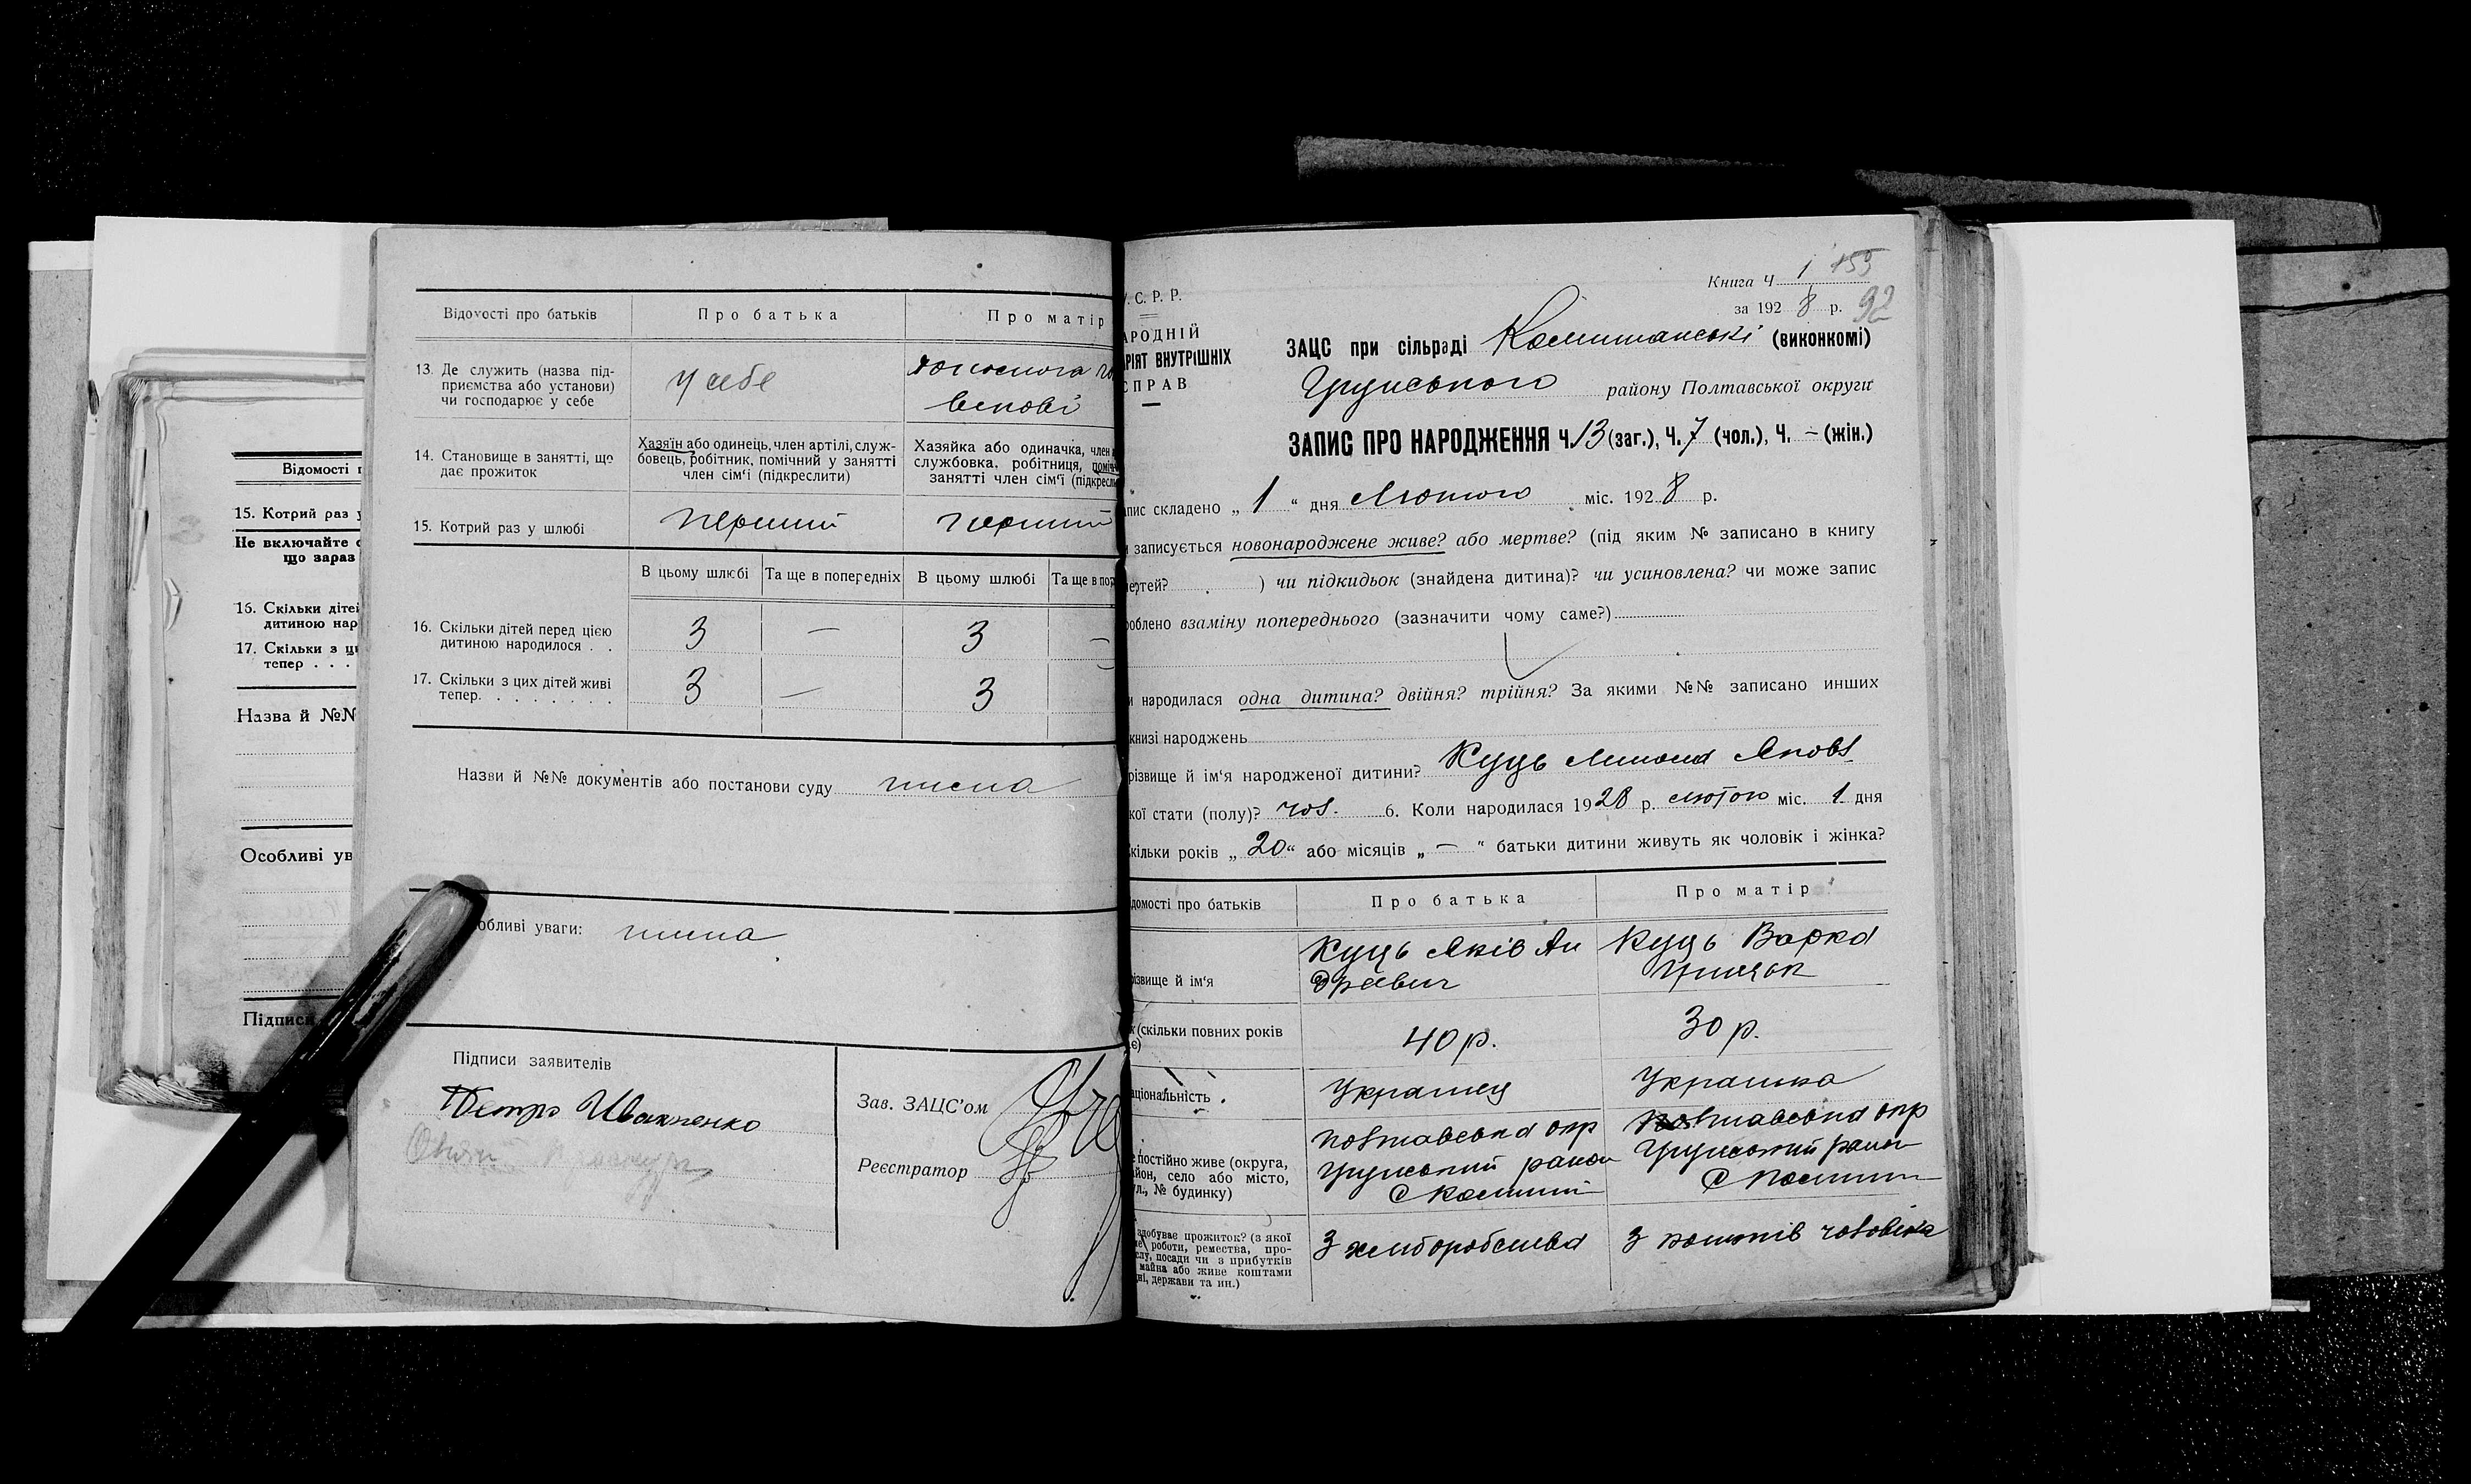 Відомості п
15. Котрий раз у
Не включайте
що зараз
16. Скільки дітей
дитиною нар
17. Скільки з ци
тепер . . .
Назва й №№
Особливі ув
Підписи
Відомості про батьків Про батька Про матір
13. Де служить (назва під-
приємства або установи)
чи господарює у себе
у себе
14. Становище в занятті, що
дає прожиток
Хазяїн або одинець, член артілі, служ-
бовець, робітник, помічний у занятті
член сім'ї (підкреслити)
Хазяйка або одиначка, член
службовка, робітниця, поміч
занятті член сім'ї (підкресл
15. Котрий раз у шлюбі перший перший
В цьому шлюбі Та ще в попередніх В цьому шлюбі Та ще в поп
16. Скільки дітей перед цією
дитиною народилося . .
3 — 3 —
17. Скільки з цих дітей живі
тепер. . . . . . . .
3 — 3
Назви й №№ документів або постанови суду нема
обливі уваги: нема
Підписи заявителів
Петро Иванченко
Зав. ЗАЦС'ом
Реєстратор
Книга Ч 1 155
за 1928 р. 92
. С. Р. Р.
АРОДНІЙ
РІЯТ ВНУТРІШНІХ
СПРАВ
ЗАЦС при сільраді (виконкомі)
Грунського району Полтавської округи
ЗАПИС ПРО НАРОДЖЕННЯ Ч. 13 (заг.), Ч. 7 (чол.), Ч. – (жін.)
апис складено „ 1 “ дня Лютого міс. 1928 р.
и записується новонароджене живе? або мертве? (під яким № записано в книгу
мертей? ) чи підкидьок (знайдена дитина)? чи усиновлена? чи може запис
роблено взаміну попереднього (зазначити чому саме?)
и народилася одна дитина? двійня? трійня? За якими №№ записано инших
книзі народжень
різвище й ім'я народженої дитини? Куць
кої стати (полу)? чол. 6. Коли народилася 1928 р. лютого міс. 1 дня
кільки років „ 20 “ або місяців „ — “ батьки дитини живуть як чоловік і жінка?
домості про батьків Про батька Про матір
різвище й ім'я
Куць Яків Ан
дреевич
Куць Варка
(скільки повних років
є)
40 р. 30 р.
аціональність Українец Українка
постійно живе (округа,
йон, село або місто,
ул., № будинку)
Полтавська окр
Грунський район
с
Полтавська окр
Грунський район
с
здобуває прожиток? (з якої
роботи, ремества, про-
слу, посади чи з прибутків
майна або живе коштами
ні, держави та ин.)
З хліборобства
З коштів чоловіка